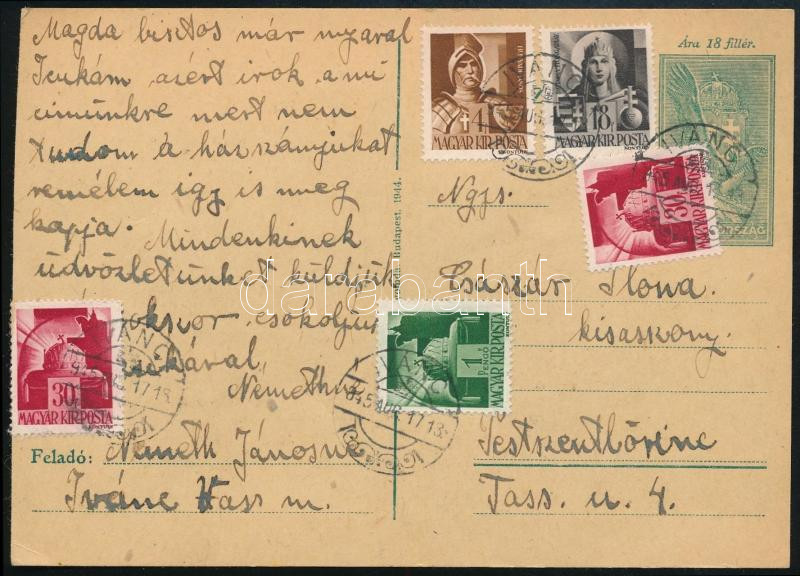 Magda biztos már nyaral
Icukám azért irok a mi
cimünkre mert nem
tudom a házszámjukat
remélem igy is meg
kapja. Mindenkinek
üdvözletünket küldjük
csókoljuk
Némethné
Feladó: Németh Jánosné
Iváne Vass m.
Ára 18 fillér.
4
MAGYAR KIR. POSTA
18
MAGYAR KIR. POSTA
IVÁNC
Ngys.
30
MAGYAR KIR. POSTA
IVÁNC
ORSZÁG
Budapest, 1944.
Császár Ilona
kisasszony.
Pestszentlőrinc
Tass. u. 4.
30
MAGYAR KIR. POSTA
IVÁNC
945 AUG. 17. 18
1
PENGŐ
MAGYAR KIR. POSTA
IVÁNC
945 AUG. 17. 18
darabanth